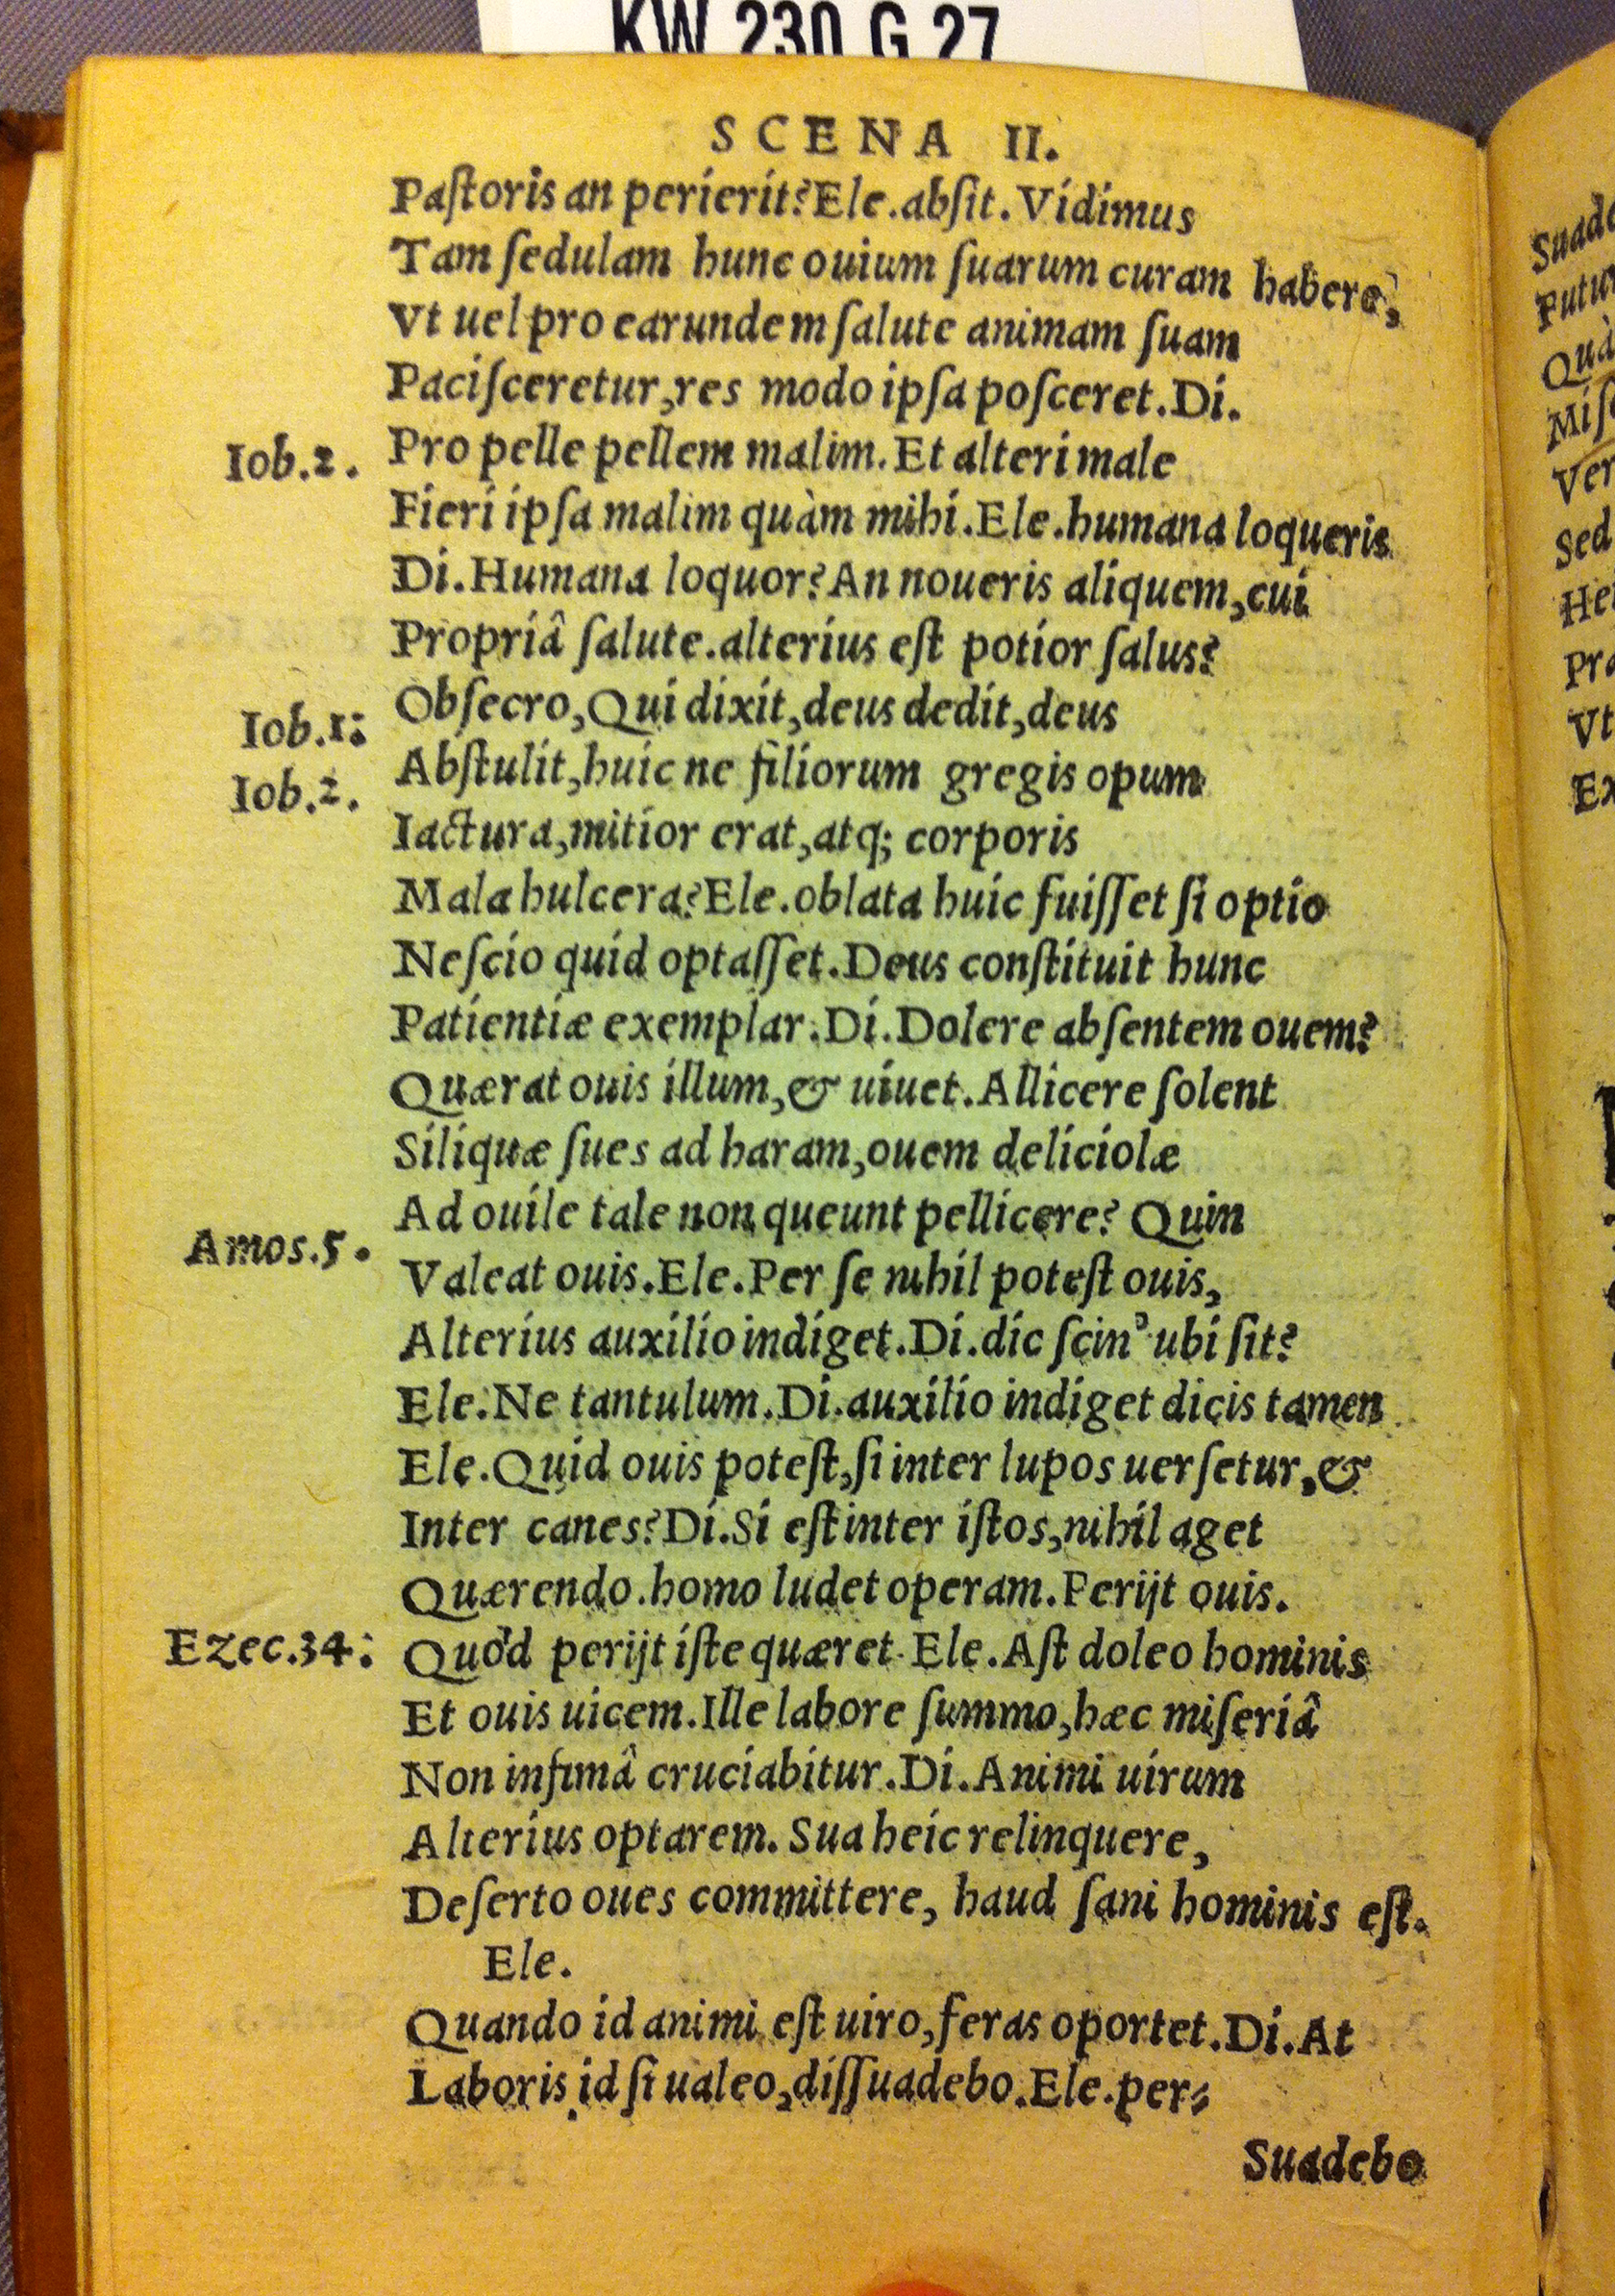 KW 230 G 27
SCENA II.
Paſtoris an perierit? Ele. abſit. Vidimus
Tam ſedulam hunc ouium ſuarum curam habere,
Vt uel pro earundem ſalute animam ſuam
Paciſceretur, res modo ipſa poſceret. Di.
Iob. 2. Pro pelle pellem malim. Et alteri male
Fieri ipſa malim quàm mihi. Ele. humana loqueris
Di. Humana loquor? An noueris aliquem, cui
Propriâ ſalute. alterius eſt potior ſalus?
Iob. 1: Obſecro, Qui dixit, deus dedit, deus
Iob. 2. Abſtulit, huic ne filiorum gregis opum
Iactura, mitior erat, atq; corporis
Mala hulcera? Ele. oblata huic fuiſſet ſi optio
Neſcio quid optaſſet. Deus conſtituit hunc
Patientiæ exemplar. Di. Dolere abſentem ouem?
Quærat ouis illum, & uiuet. Allicere ſolent
Siliquæ ſues ad haram, ouem deliciolæ
Ad ouile tale non queunt pellicere? Quin
Amos. 5. Valeat ouis. Ele. Per ſe nihil poteſt ouis,
Alterius auxilio indiget. Di. dic ſcin' ubi ſit?
Ele. Ne tantulum. Di. auxilio indiget dicis tamen
Ele. Quid ouis poteſt, ſi inter lupos uerſetur, &
Inter canes? Di. Si eſt inter iſtos, nihil aget
Quærendo. homo ludet operam. Perijt ouis.
Ezec. 34: Quòd perijt iſte quæret. Ele. Aſt doleo hominis
Et ouis uicem. Ille labore ſummo, hæc miſeriâ
Non infimâ cruciabitur. Di. Animi uirum
Alterius optarem. Sua heic relinquere,
Deſerto oues committere, haud ſani hominis eſt.
Ele.
Quando id animi eſt uiro, feras oportet. Di. At
Laboris id ſi ualeo, diſſuadebo. Ele. per⸗
Suadebo
Putu
Quà
Miſ
Ver
Sed
Vt
Ex